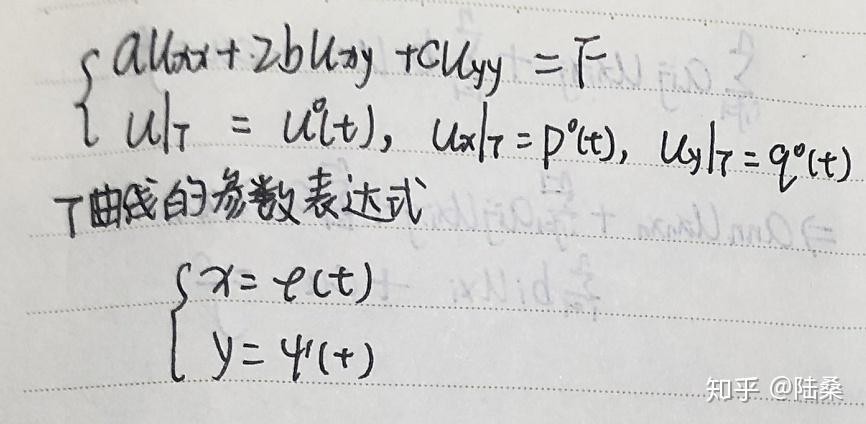 { aUxx + 2bUxy + cUyy = F
U|T = U⁰(t), Ux|T = p⁰(t), Uy|T = q⁰(t)
T曲线的参数表达式
{ x = φ(t)
y = ψ(t)
知乎 @陆桑